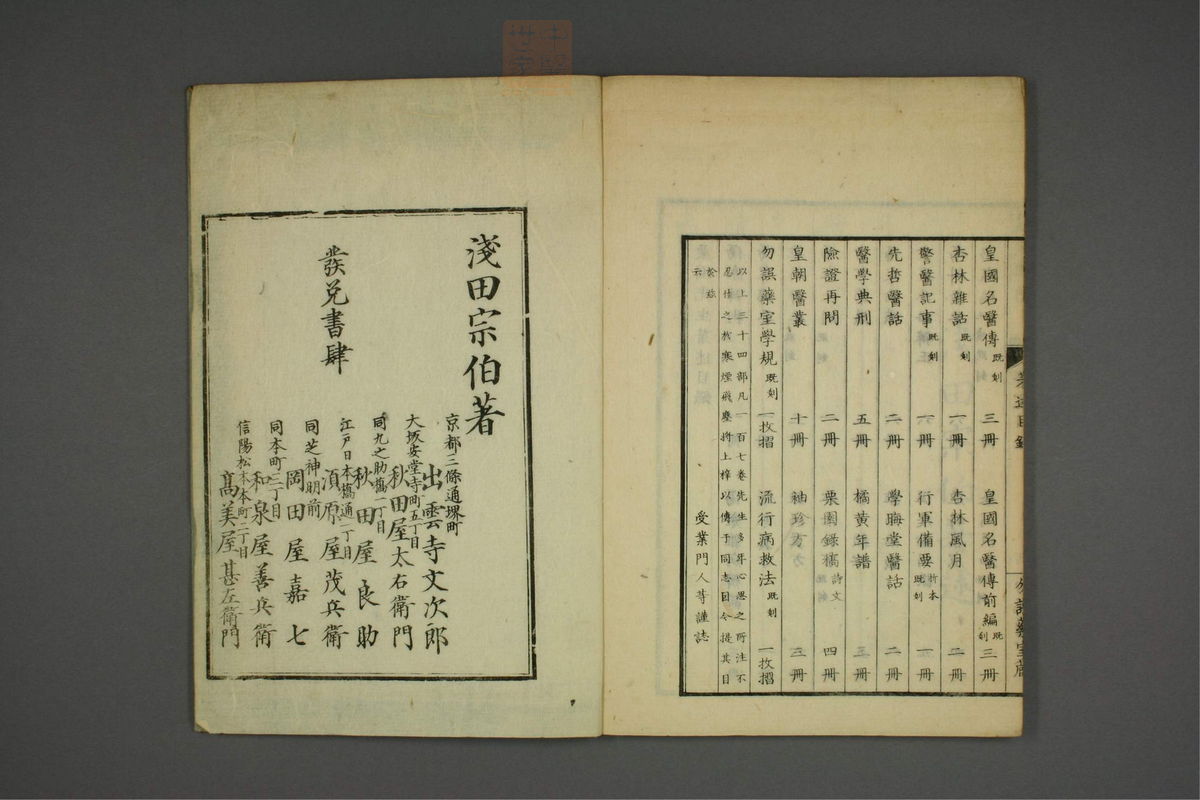 皇國名醫傳 既刻 三冊 皇國名醫傳前編 既刻 三冊
杏林雜話 既刻 一冊 杏林風月 二冊
警醫記事 既刻 一冊 行軍備要 折本 既刻 一冊
先哲醫話 二冊 學晦堂醫話 二冊
醫學典刑 五冊 橘黃年譜 三冊
險證再問 二冊 栗園錄稿 詩文 四冊
皇朝醫叢 十冊 袖珍方 三冊
勿誤藥室學規 既刻 一枚摺 流行病救法 既刻 一枚摺
以上三十四部凡一百七卷先生多年心思之所注不
忍付之於寒煙飛塵將上梓以傳于同志因令提其目
於茲
云
受業門人等謹誌
淺田宗伯著
發兌書肆
京都三條通堺町
出雲寺文次郎
大坂安堂寺町五丁目
秋田屋太右衛門
同九之助橋一丁目
秋田屋良助
江戶日本橋通二丁目
須原屋茂兵衛
同芝神明前
岡田屋嘉七
同本町三丁目
和泉屋善兵衛
信陽松本本町二丁目
髙美屋甚左衛門